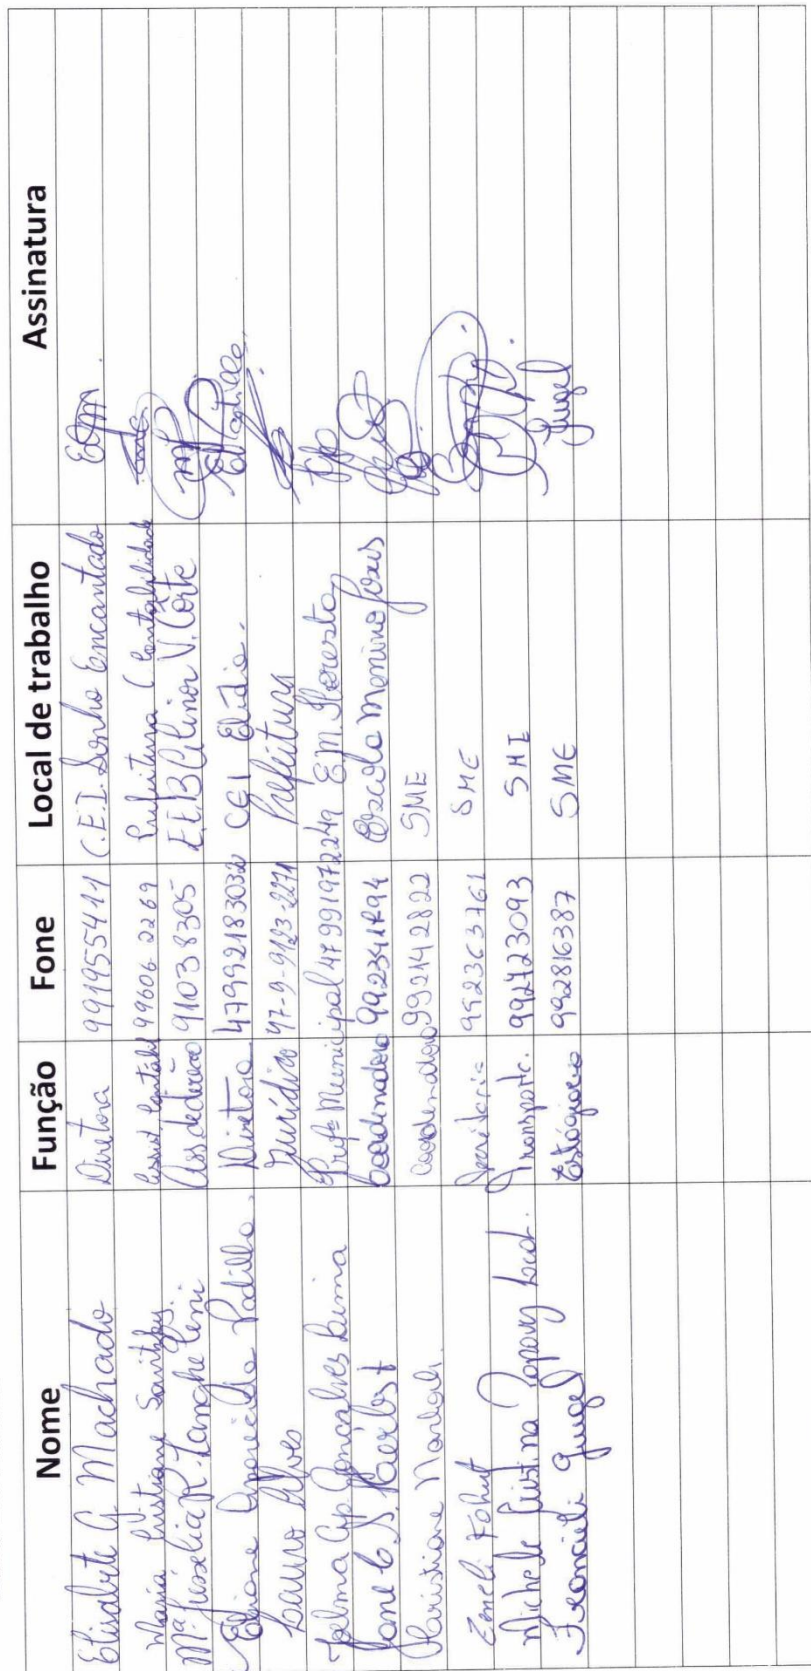 Nome Função Fone Local de trabalho Assinatura
Elisabete G. Machado Diretora 991955411 C.E.I. Sonho Encantado
Maria Cristiane 99606 2269 Prefeitura Contabilidade
Mª Juselia R. Zanghelini Ass de direção 91038305 E.E.B Celinor V. Côrte
Eliane Aparecida Padilha Diretora 47992183032 CEI Elídio.
Lauro Alves Jurídico 47-9-9123-2271 Prefeitura
Telma Ap. Gonçalves Lima Profª Municipal 47991972249 E.M. Floresta
Jone C. S. Herbst Coordenadora 992341894 Escola Menino Jesus
Cristiane Coordenadora 992142822 SME
Zeneli Kohut Secretaria 992363761 SME
Michele Cristina Popovy Transporte. 992723093 SME
Francieli Gugel Estágiaria 992816387 SME Gugel